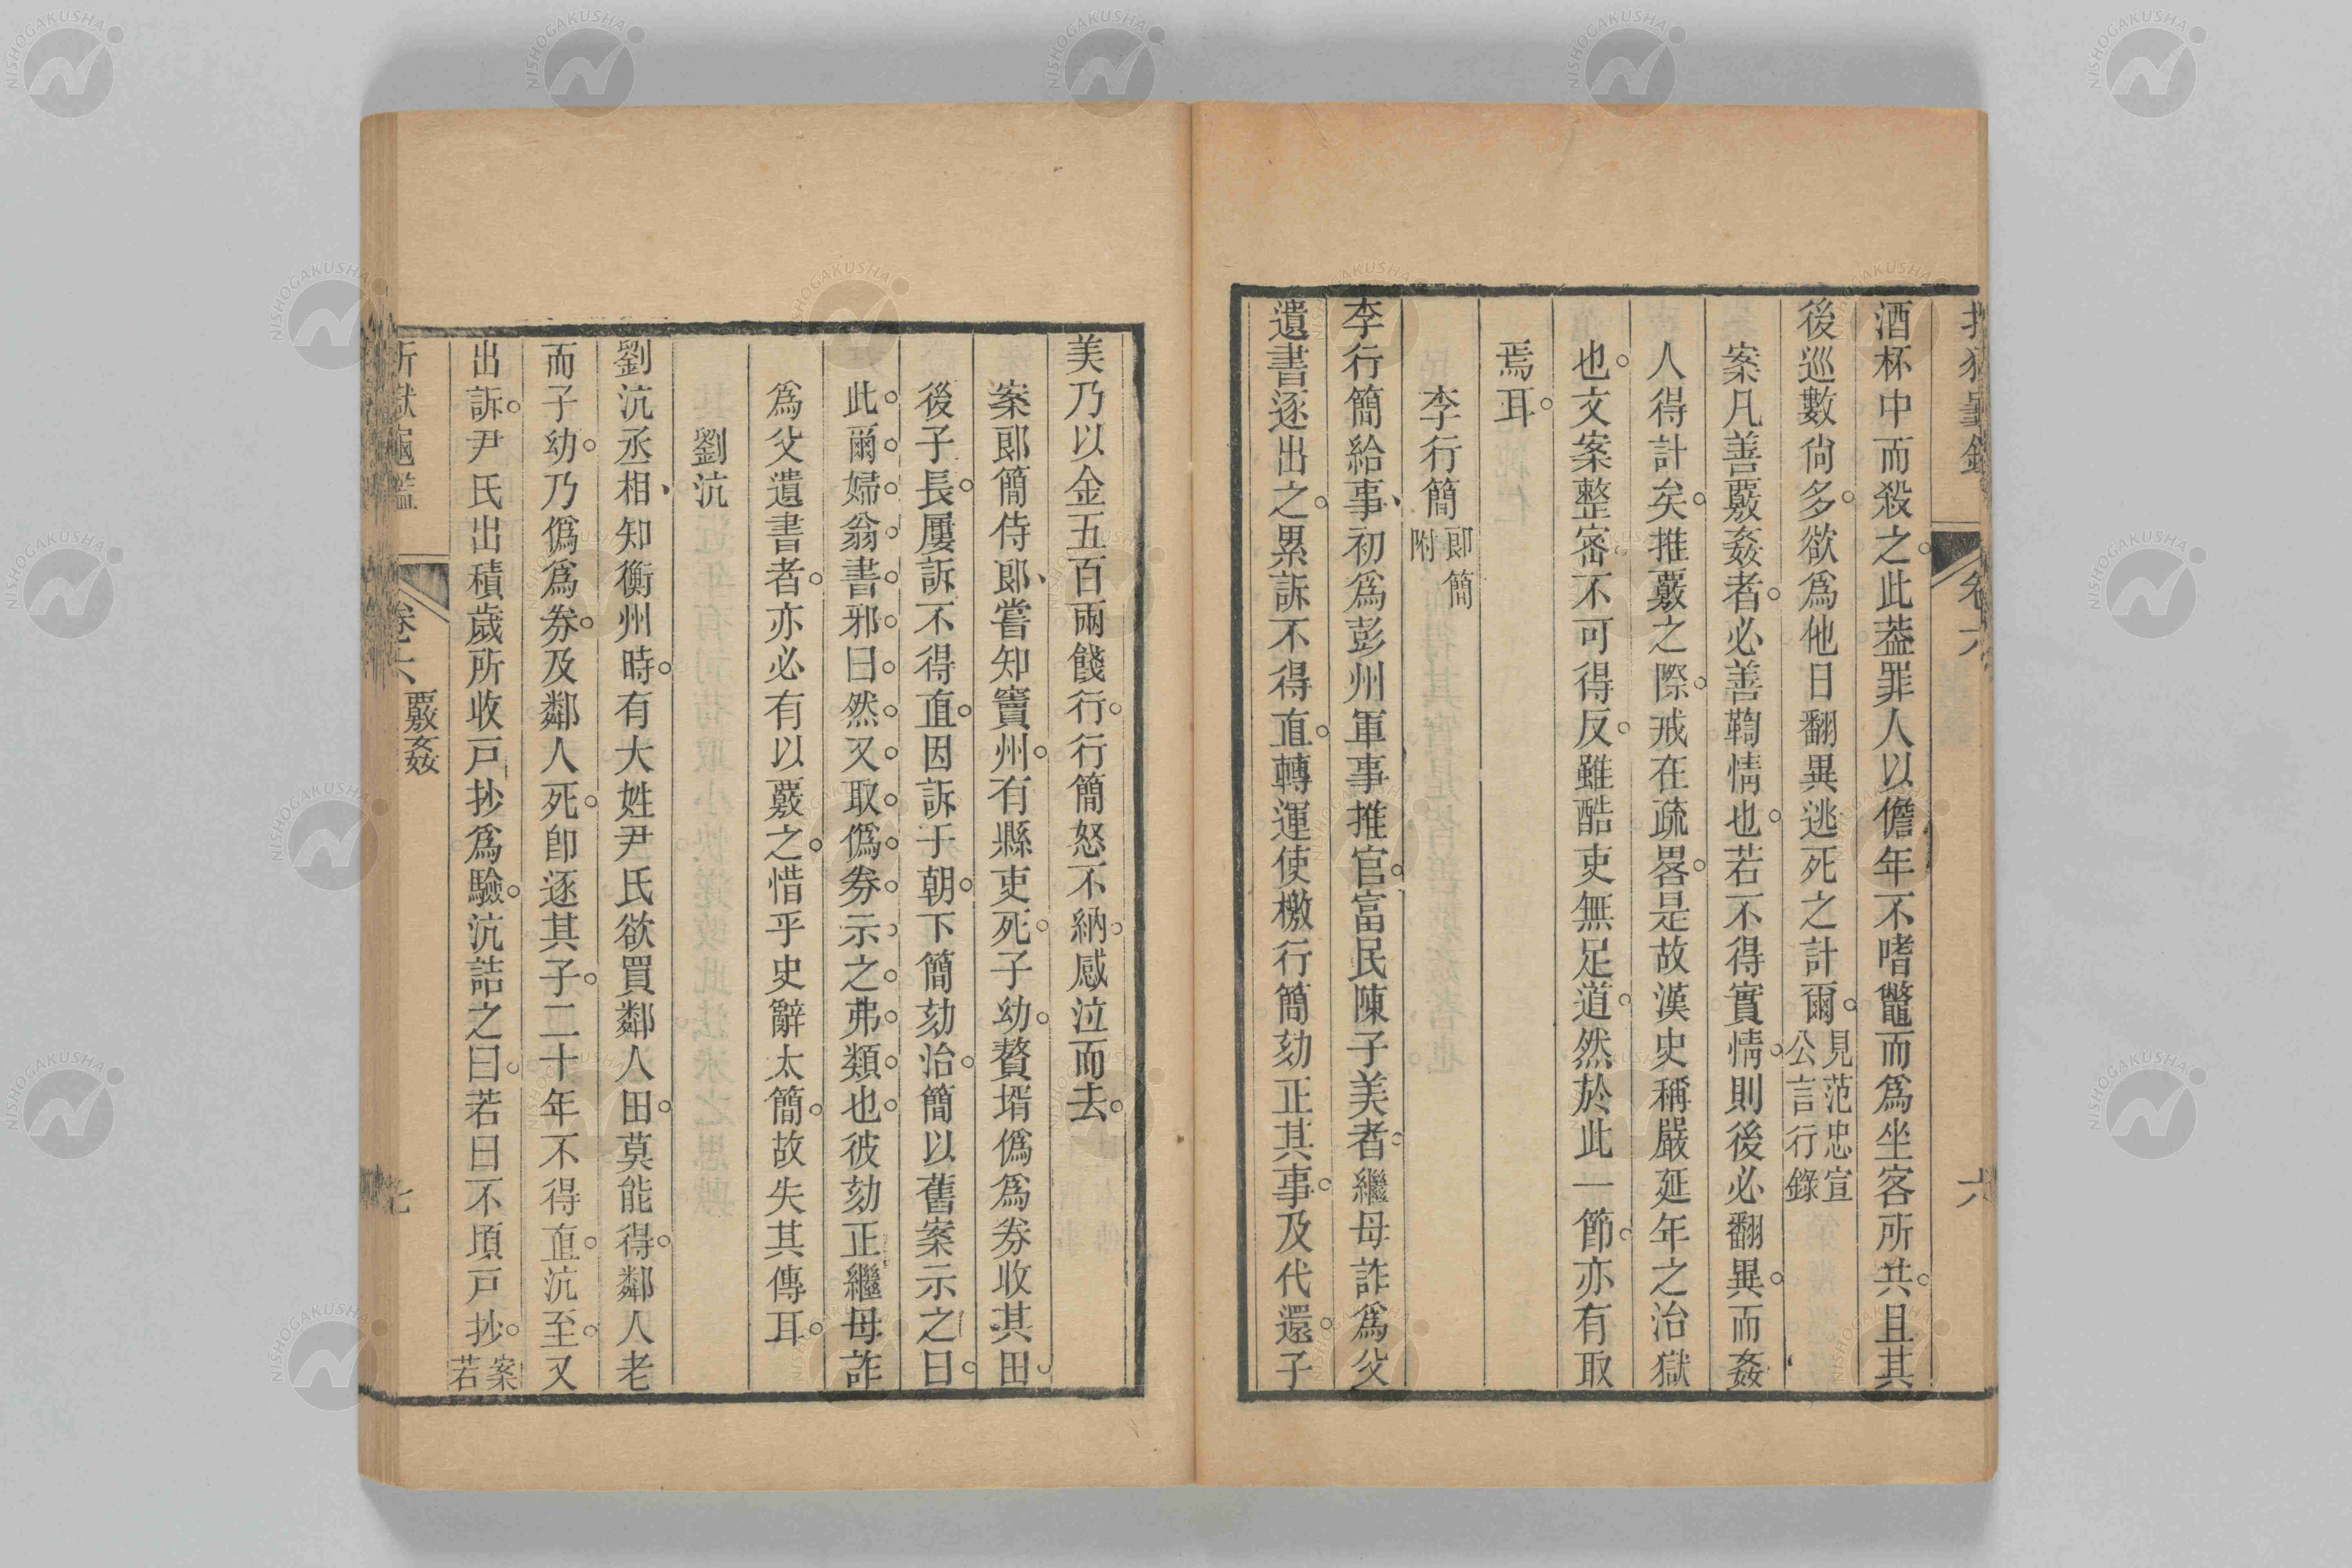 酒杯中而殺之。此葢罪人以儋年不嗜鼈而爲坐客所共。且其
後巡數尙多。欲爲他日翻異逃死之計爾。見范忠宣公言行錄
案凡善覈姦者。必善鞫情也。若不得實情。則後必翻異。而姦
人得計矣。推覈之際。戒在疏畧。是故漢史稱嚴延年之治獄
也。文案整密。不可得反。雖酷吏無足道。然於此一節。亦有取
焉耳。
李行簡 郎簡附
李行簡給事、初爲彭州軍事推官。富民陳子美者。繼母詐爲父
遺書逐出之。累訴不得直。轉運使檄行簡劾正其事。及代還。子
美乃以金五百兩餞行。行簡怒不納。感泣而去。
案郎簡侍郎、嘗知竇州。有縣吏死。子幼。贅壻僞爲劵收其田。
後子長。屢訴不得直。因訴于朝。下簡劾治。簡以舊案示之曰。
此。爾。婦。翁。書。邪。曰。然。又。取。僞。劵。示。之。弗。類。也。彼劾正繼母詐
爲父遺書者。亦必有以覈之。惜乎史辭太簡。故失其傳耳。
劉沆
劉沆丞相、知衡州時。有大姓尹氏欲買鄰人田。莫能得。鄰人老
而子幼。乃僞爲劵。及鄰人死。卽逐其子。二十年不得直。沆至。又
出訴。尹氏出積歲所收戸抄爲驗。沆詰之曰。若日不頃戸抄。案若
覈姦
卷六
七
六